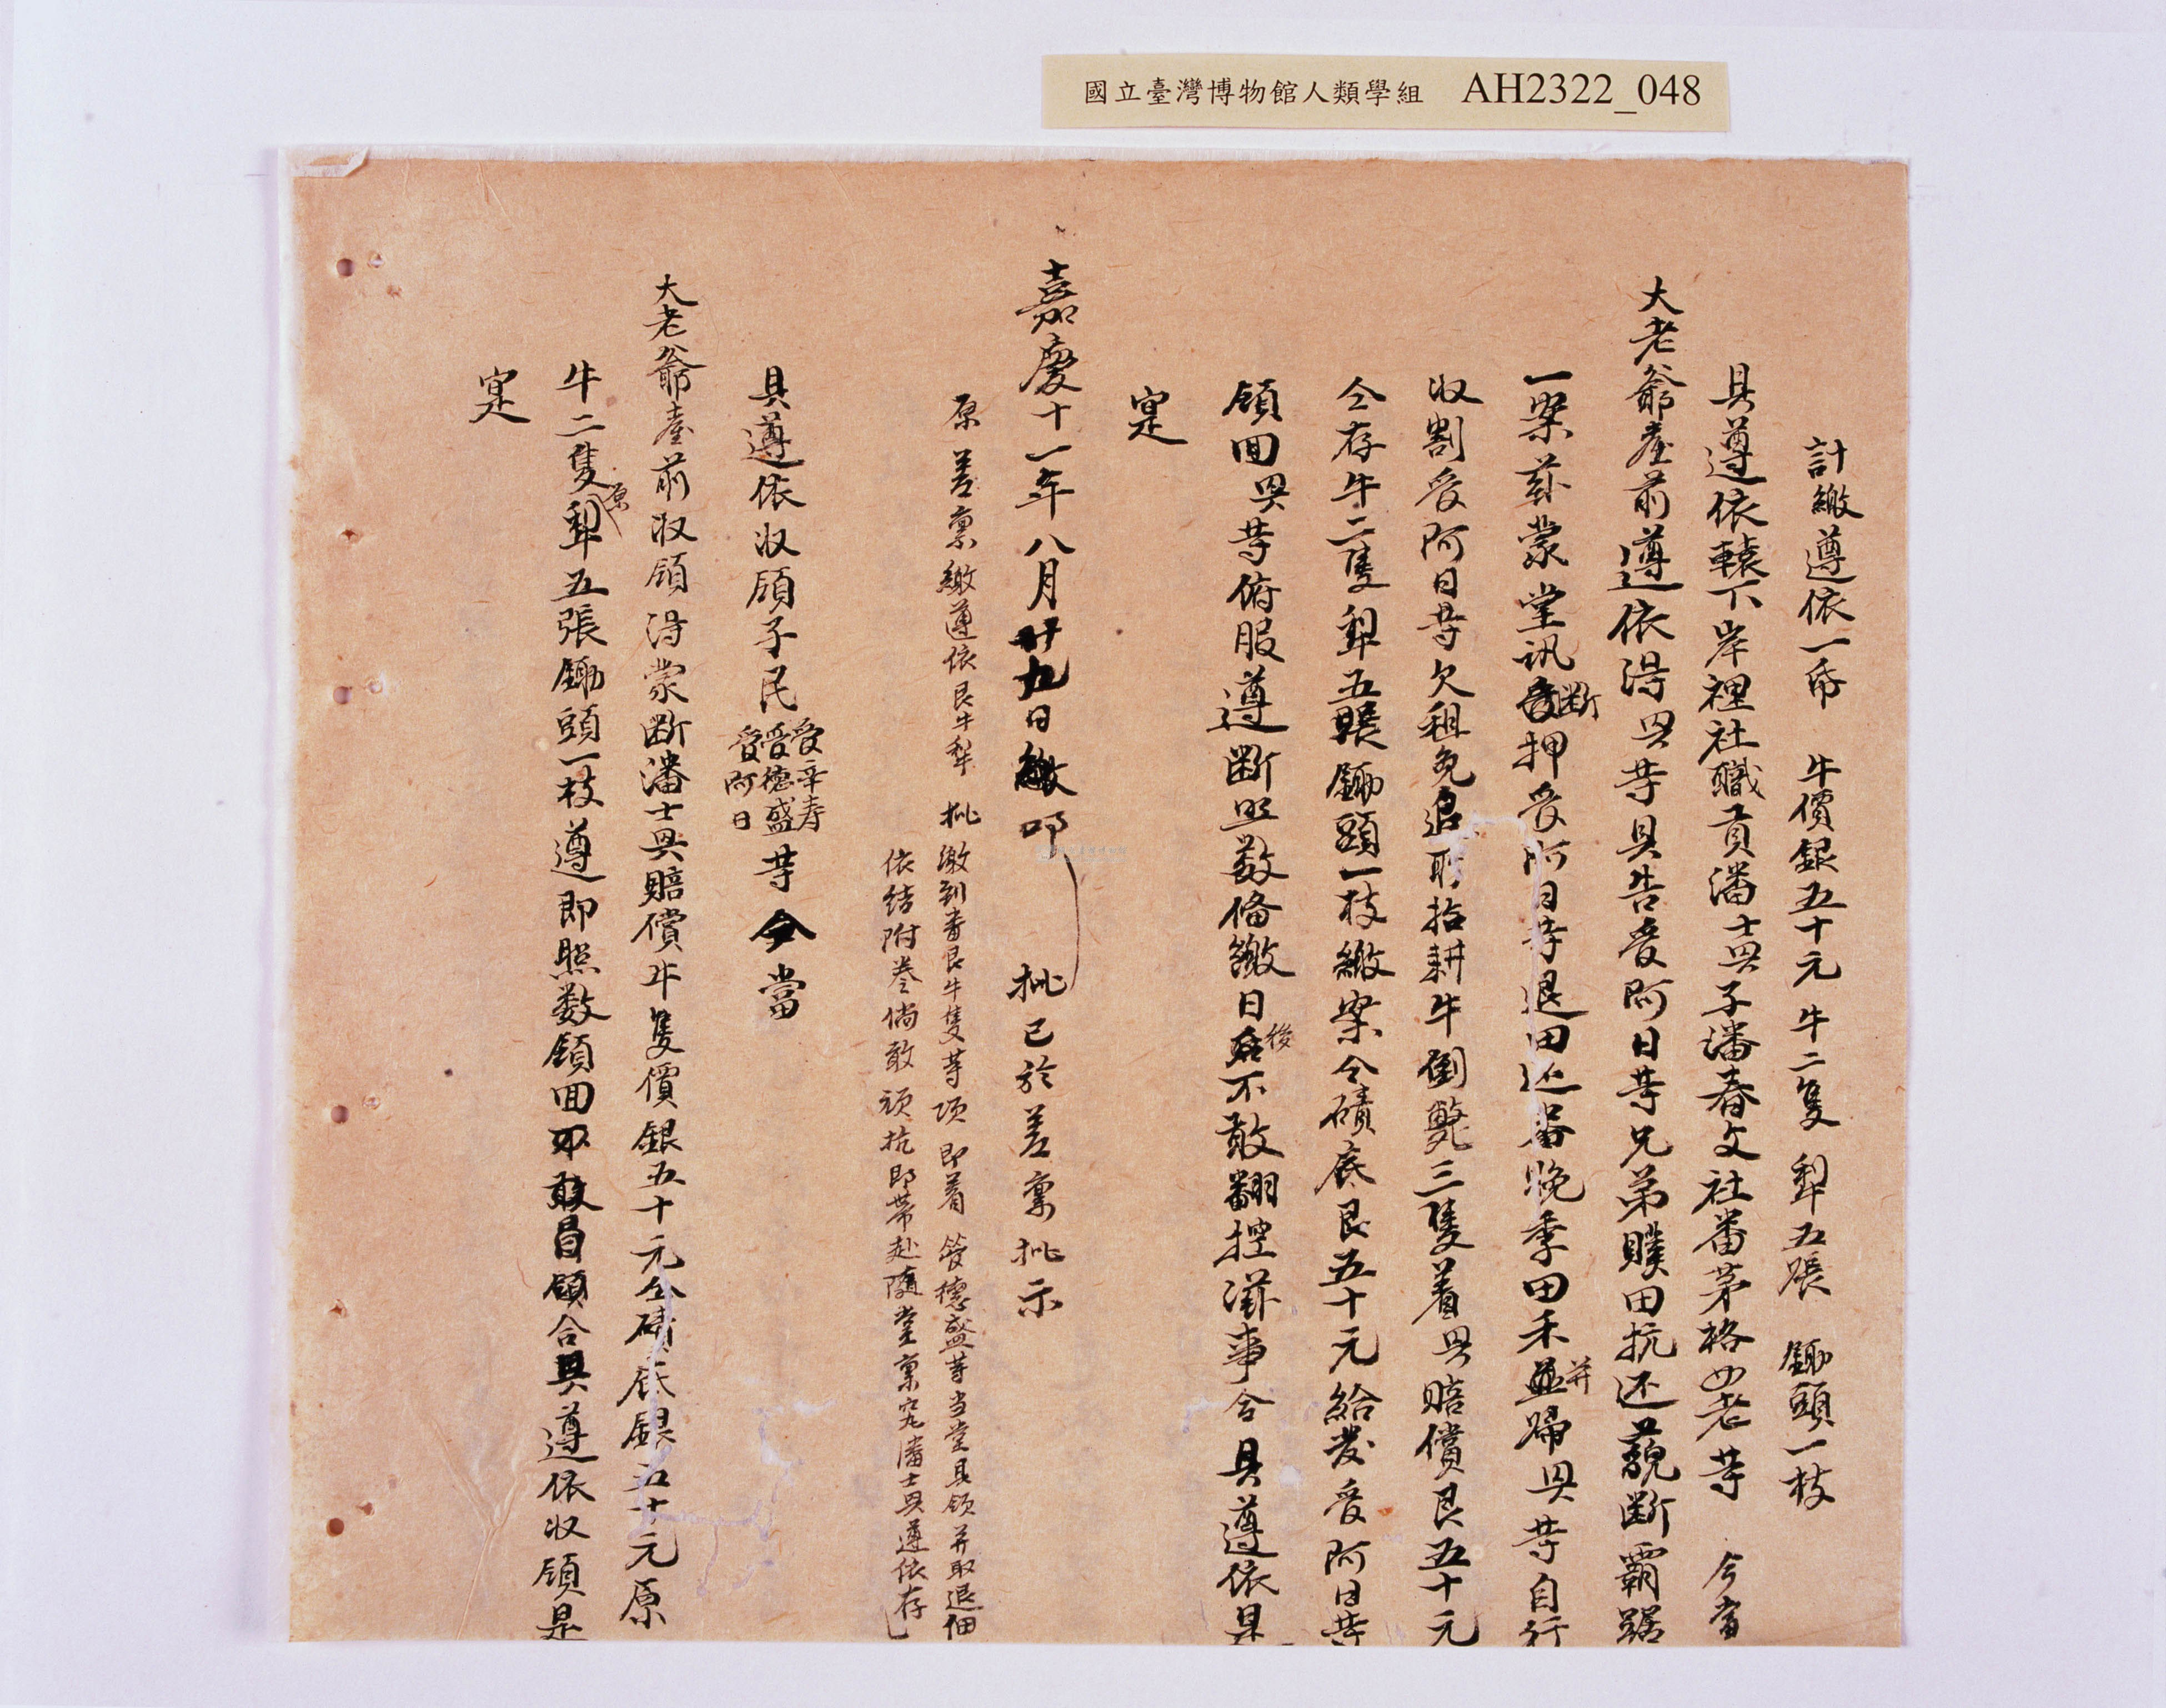 國立臺灣博物館人類學組 AH2322_048
計繳遵依一帋 牛價銀五十元 牛二隻 犁五張 鋤頭一枝
具遵依轅下岸裡社職員潘士兴子潘春文社番茅格四老等 今當
大老爺臺前遵依淂兴等具告受阿日等兄弟贌田抗还藐断霸踞
一案兹蒙堂訊断押受阿日等退田还番晚季田禾并歸兴等自行
收割受阿日等欠租免追所拾耕牛倒斃三隻着兴賠償艮五十元
仝存牛二隻犁五張鋤頭一枝繳案仝磧底艮五十元給发受阿日等
領囬兴等俯服遵断照数俻繳日後不敢翻控滋事合具遵依是
寔
嘉慶十一年八月廿九日繳叩 批已於差稟批示
原差稟繳遵依艮牛犂 批繳到番艮牛隻等項即着管德盛等当堂具領并取退佃
依結附卷倘敢頑抗即带赴隨堂稟究潘士兴遵依存
具遵依收領子民受辛寿受德盛受阿日等今當
大老爺臺前收領淂蒙断潘士兴賠償牛隻價銀五十元仝磧底銀五十元原
牛二隻原犁五張鋤頭一枝遵即照数領囬不敢冒領合具遵依收領是
寔